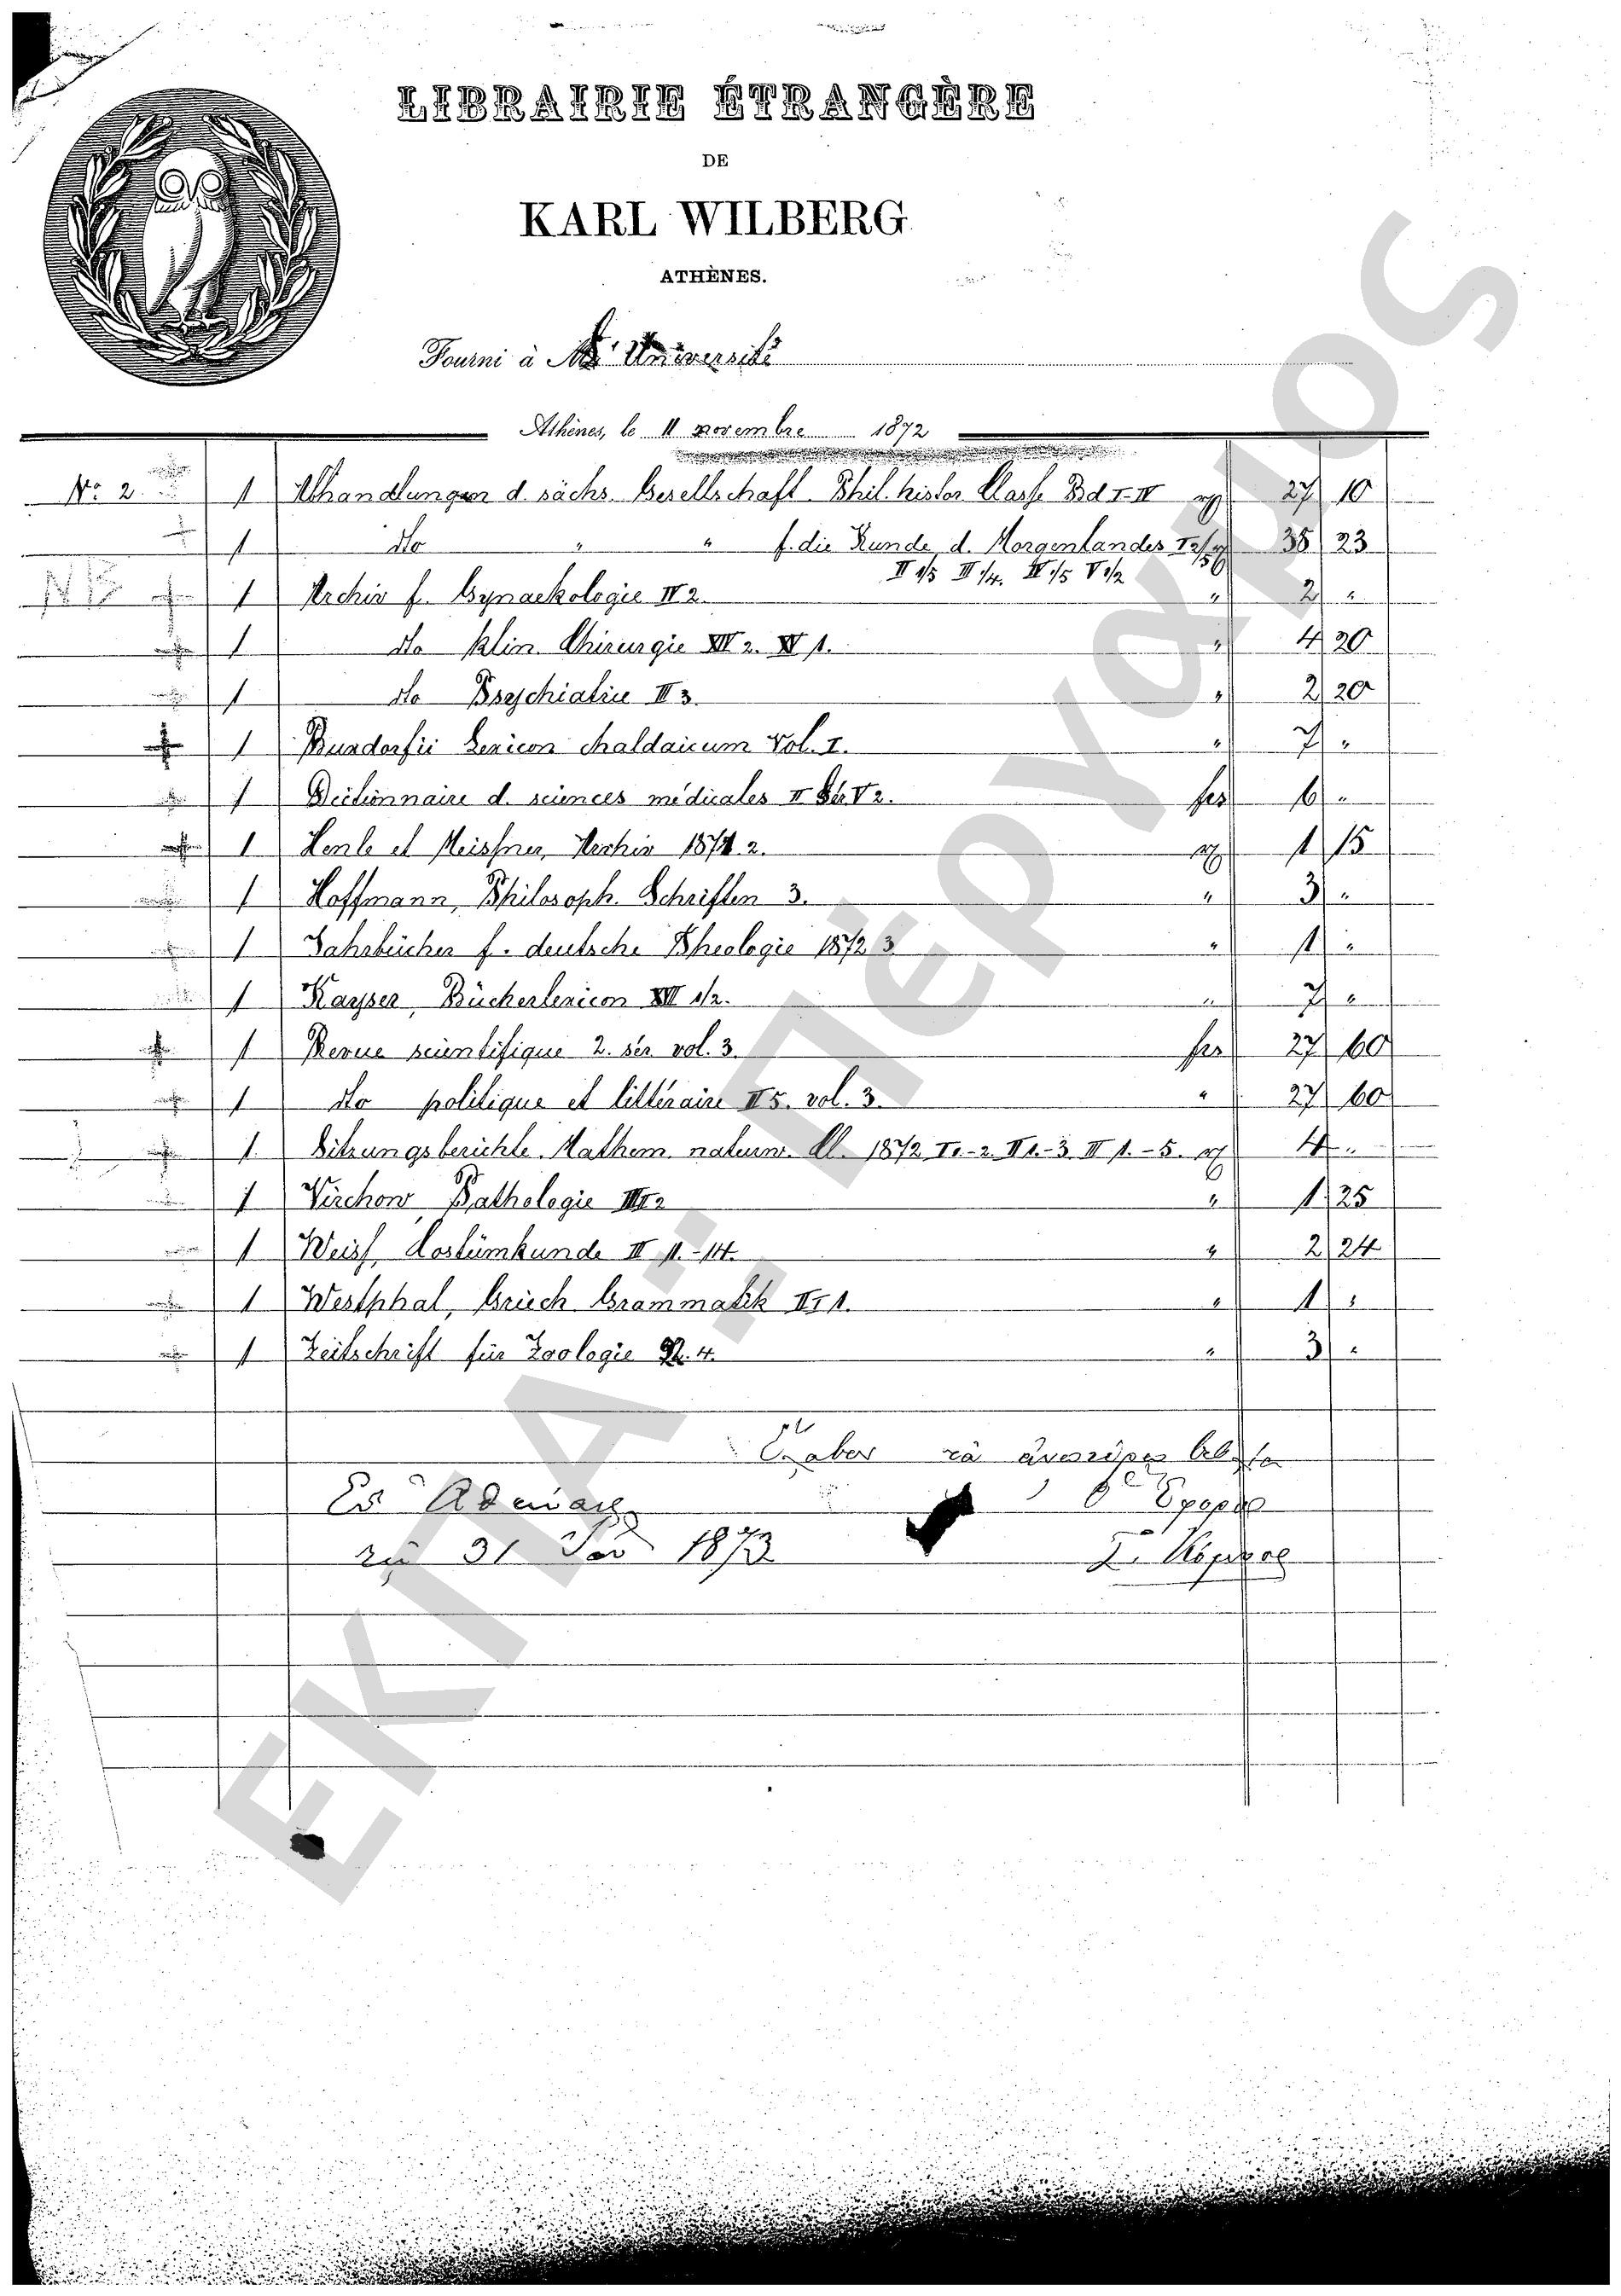 LIBRAIRIE ÉTRANGÈRE
DE
KARL WILBERG
ATHÈNES.
Fourni à l'Université
Athènes, le 11 novembre 1872
No 2. 1 Abhandlungen d. sächs. Gesellschaft. Phil. histor. Classe Bd I-IV 27 10
1 dto " " f. die Kunde d. Morgenlandes 38 23
II 1/5 III 1/4. IV 1/5 V 1/2
1 Archiv f. Gynaekologie IV 2. " 2 "
1 dto klin. Chirurgie XIV 2. XV 1. " 4 20
1 dto Psychiatrie III 3. " 2 20
1 Buxdorfii Lexicon chaldaicum Vol. I. " 7 "
1 Dictionnaire d. sciences médicales II Sér V 2. frs 6 "
1 Henle et Meissner, Archiv 1871 2. 1 15
1 Hoffmann, Philosoph. Schriften 3. " 3 "
1 Jahrbücher f. deutsche Theologie 1872 3. " 1 "
1 Kayser, Bücherlexicon XVII 1/2. " 7 "
1 Revue scientifique 2. sér. vol. 3. frs 27 60
1 dto politique et littéraire II S. vol. 3. " 27 60
1 Sitzungsberichte. Mathem. naturw. Cl. 1872 I 1.-2. II 1.-3. III 1.-5. 4 "
1 Virchow, Pathologie III I 2 " 1 25
1 Weiss, Costümkunde III 11.-14. " 2 24
1 Westphal, Griech. Grammatik II I 1. " 1 "
1 Zeitschrift für Zoologie 4. " 3 "
Ἔλαβον τὰ ἀνωτέρω βιβλία
Ἐν Ἀθήναις ὁ Ἔφορος
τῇ 31 1873
ΕΚΠΑ: Πέργαμος